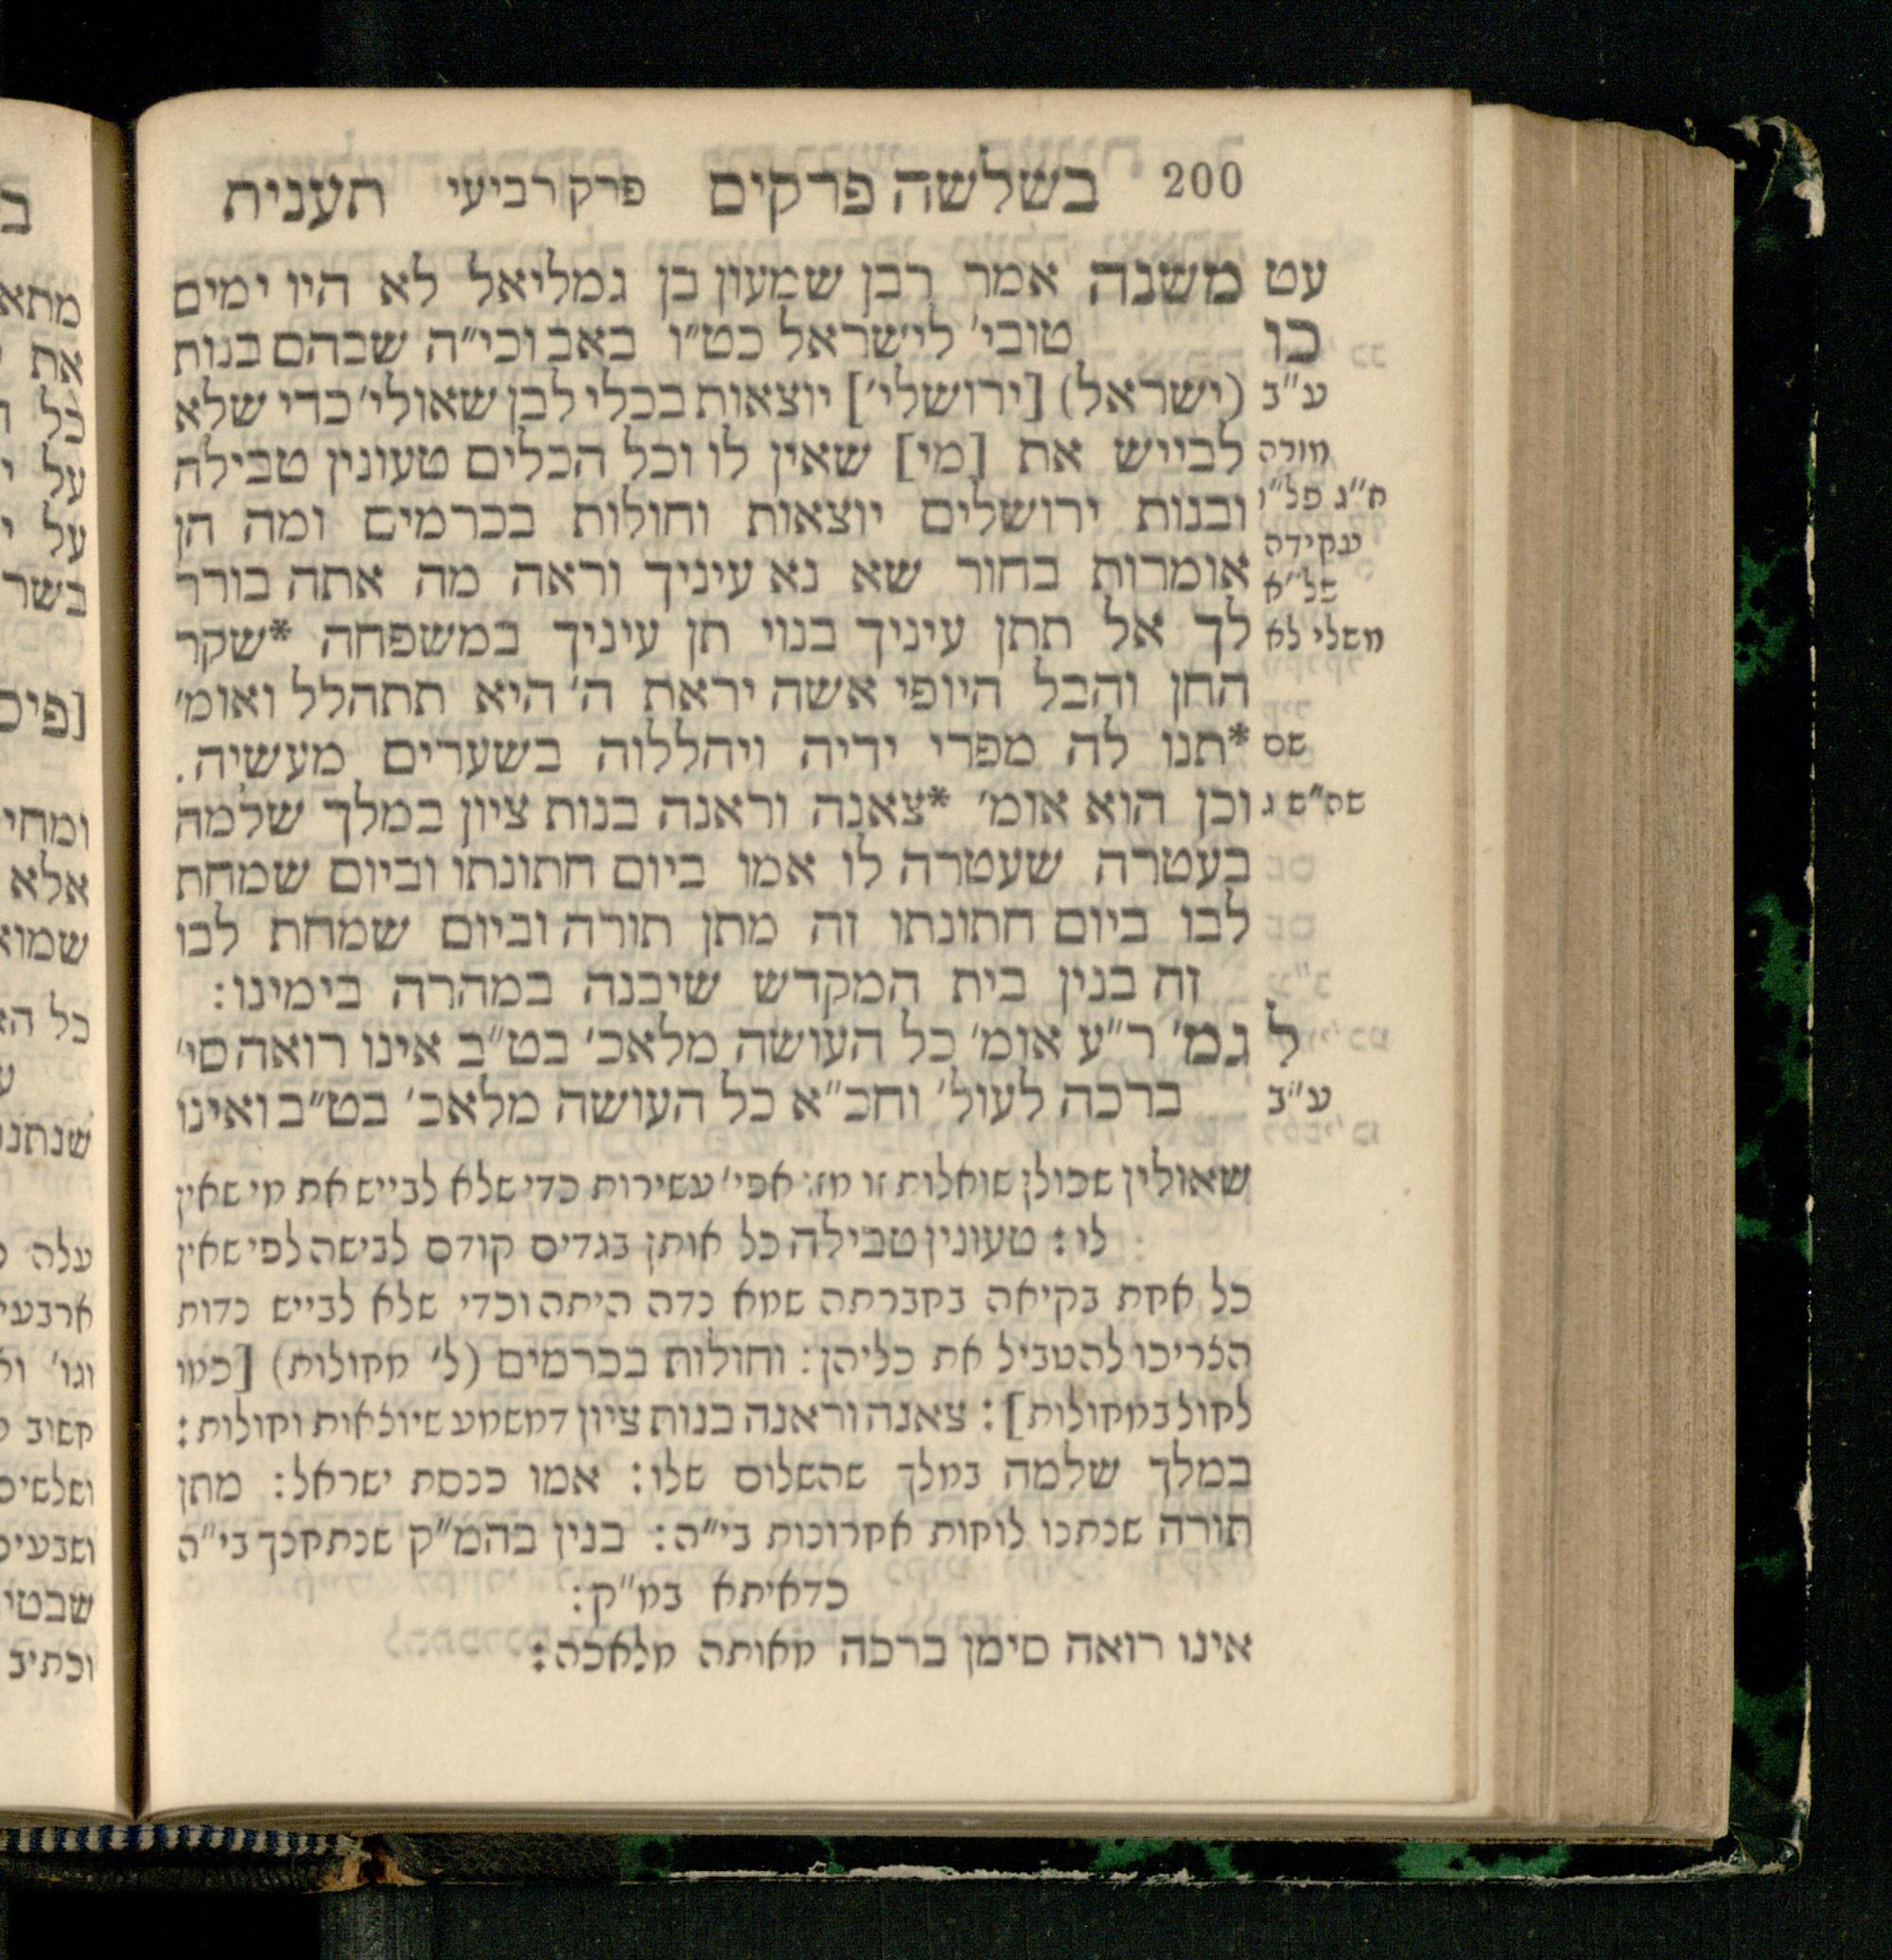 200 בשלשה פרקים פרק רביעי תענית
עט משנה אמר רבן שמעון בן גמליאל לא היו ימים
כו טובי׳ לישראל כט״ו באב וכי״ה שבהם בנות
ע״ב (ישראל) [ירושלי׳] יוצאות בכלי לבן שאולי׳ כדי שלא
מורה לבייש את [מי] שאין לו וכל הכלים טעונין טבילה
ח״ג פל״ו ובנות ירושלים יוצאות וחולות בכרמים ומה הן
עקידה אומרות בחור שא נא עיניך וראה מה אתה בורר
של״א
משלי לא לך אל תתן עיניך בנוי תן עיניך במשפחה *שקר
החן והבל היופי אשה יראת ה׳ היא תתהלל ואומ׳
שם *תנו לה מפרי ידיה ויהללוה בשערים מעשיה.
שה״ש ג וכן הוא אומ׳ *צאנה וראנה בנות ציון במלך שלמה
בעטרה שעטרה לו אמו ביום חתונתו וביום שמחת
לבו ביום חתונתו זה מתן תורה וביום שמחת לבו
זה בנין בית המקדש שיבנה במהרה בימינו:
ל גמ׳ ר״ע אומ׳ כל העושה מלאכ׳ בט״ב אינו רואה סי׳
ע״ב ברכה לעול׳ וחכ״א כל העושה מלאכ׳ בט״ב ואינו
שאולין שכולן שואלות זו מזו אפי׳ עשירות כדי שלא לבייש את מי שאין
לו: טעונין טבילה כל אותן בגדים קודם לבישה לפי שאין
כל אחת בקיאה בחברתה שמא נדה היתה וכדי שלא לבייש נדות
הצריכו להטביל את כליהן: וחולות בכרמים (ל׳ מחולות) [כמו
לחול במחולות]: צאנה וראנה בנות ציון דמשמע שיוצאות וחולות:
במלך שלמה במלך שהשלום שלו: אמו כנסת ישראל: מתן
תורה שנתנו לוחות אחרונות בי״ה: בנין בהמ״ק שנתחנך בי״ה
כדאיתא במ״ק:
אינו רואה סימן ברכה מאותה מלאכה: